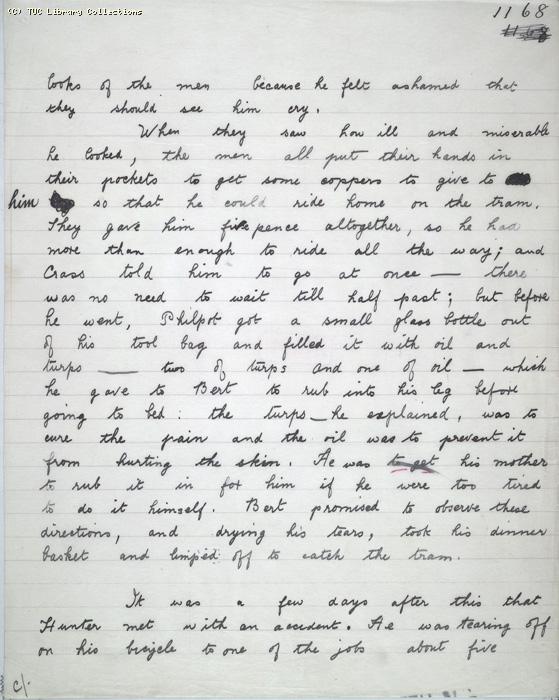 (C) TUC Library Collections
1168
1168
looks of the men because he felt ashamed that
they should see him cry.
When they saw how ill and miserable
he looked, the men all put their hands in
their pockets to get some coppers to give to
him so that he could ride home on the tram.
They gave him fivepence altogether, so he had
more than enough to ride all the way; and
Crass told him to go at once — there
was no need to wait till half past; but before
he went, Philpot got a small glass bottle out
of his tool bag and filled it with oil and
turps — two of turps and one of oil — which
he gave to Bert to rub into his leg before
going to bed: the turps — he explained, was to
cure the pain and the oil was to prevent it
from hurting the skin. He was to get his mother
to rub it in for him if he were too tired
to do it himself. Bert promised to observe these
directions, and drying his tears, took his dinner
basket and limped off to catch the tram.
It was a few days after this that
Hunter met with an accident. He was tearing off
on his bicycle to one of the jobs about five